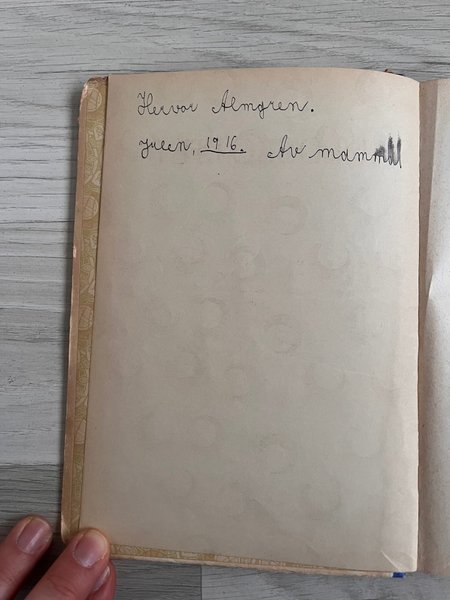 Hervor Almgren.
Julen, 1916. Av mamma